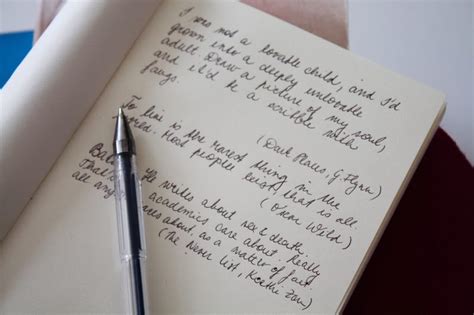 I was not a lovable child, and I'd
grown into a deeply unlovable
adult. Draw a picture of my soul,
and it'd be a scribble with
fangs.
(Dark Places, G. Flynn)
To live is the rarest thing in the
Most people exist, that is all.
Wild)
He writes about sex & death.
That's academics care about. Really
all about, as a matter of fact.
(The Never List, Koethi Zan)